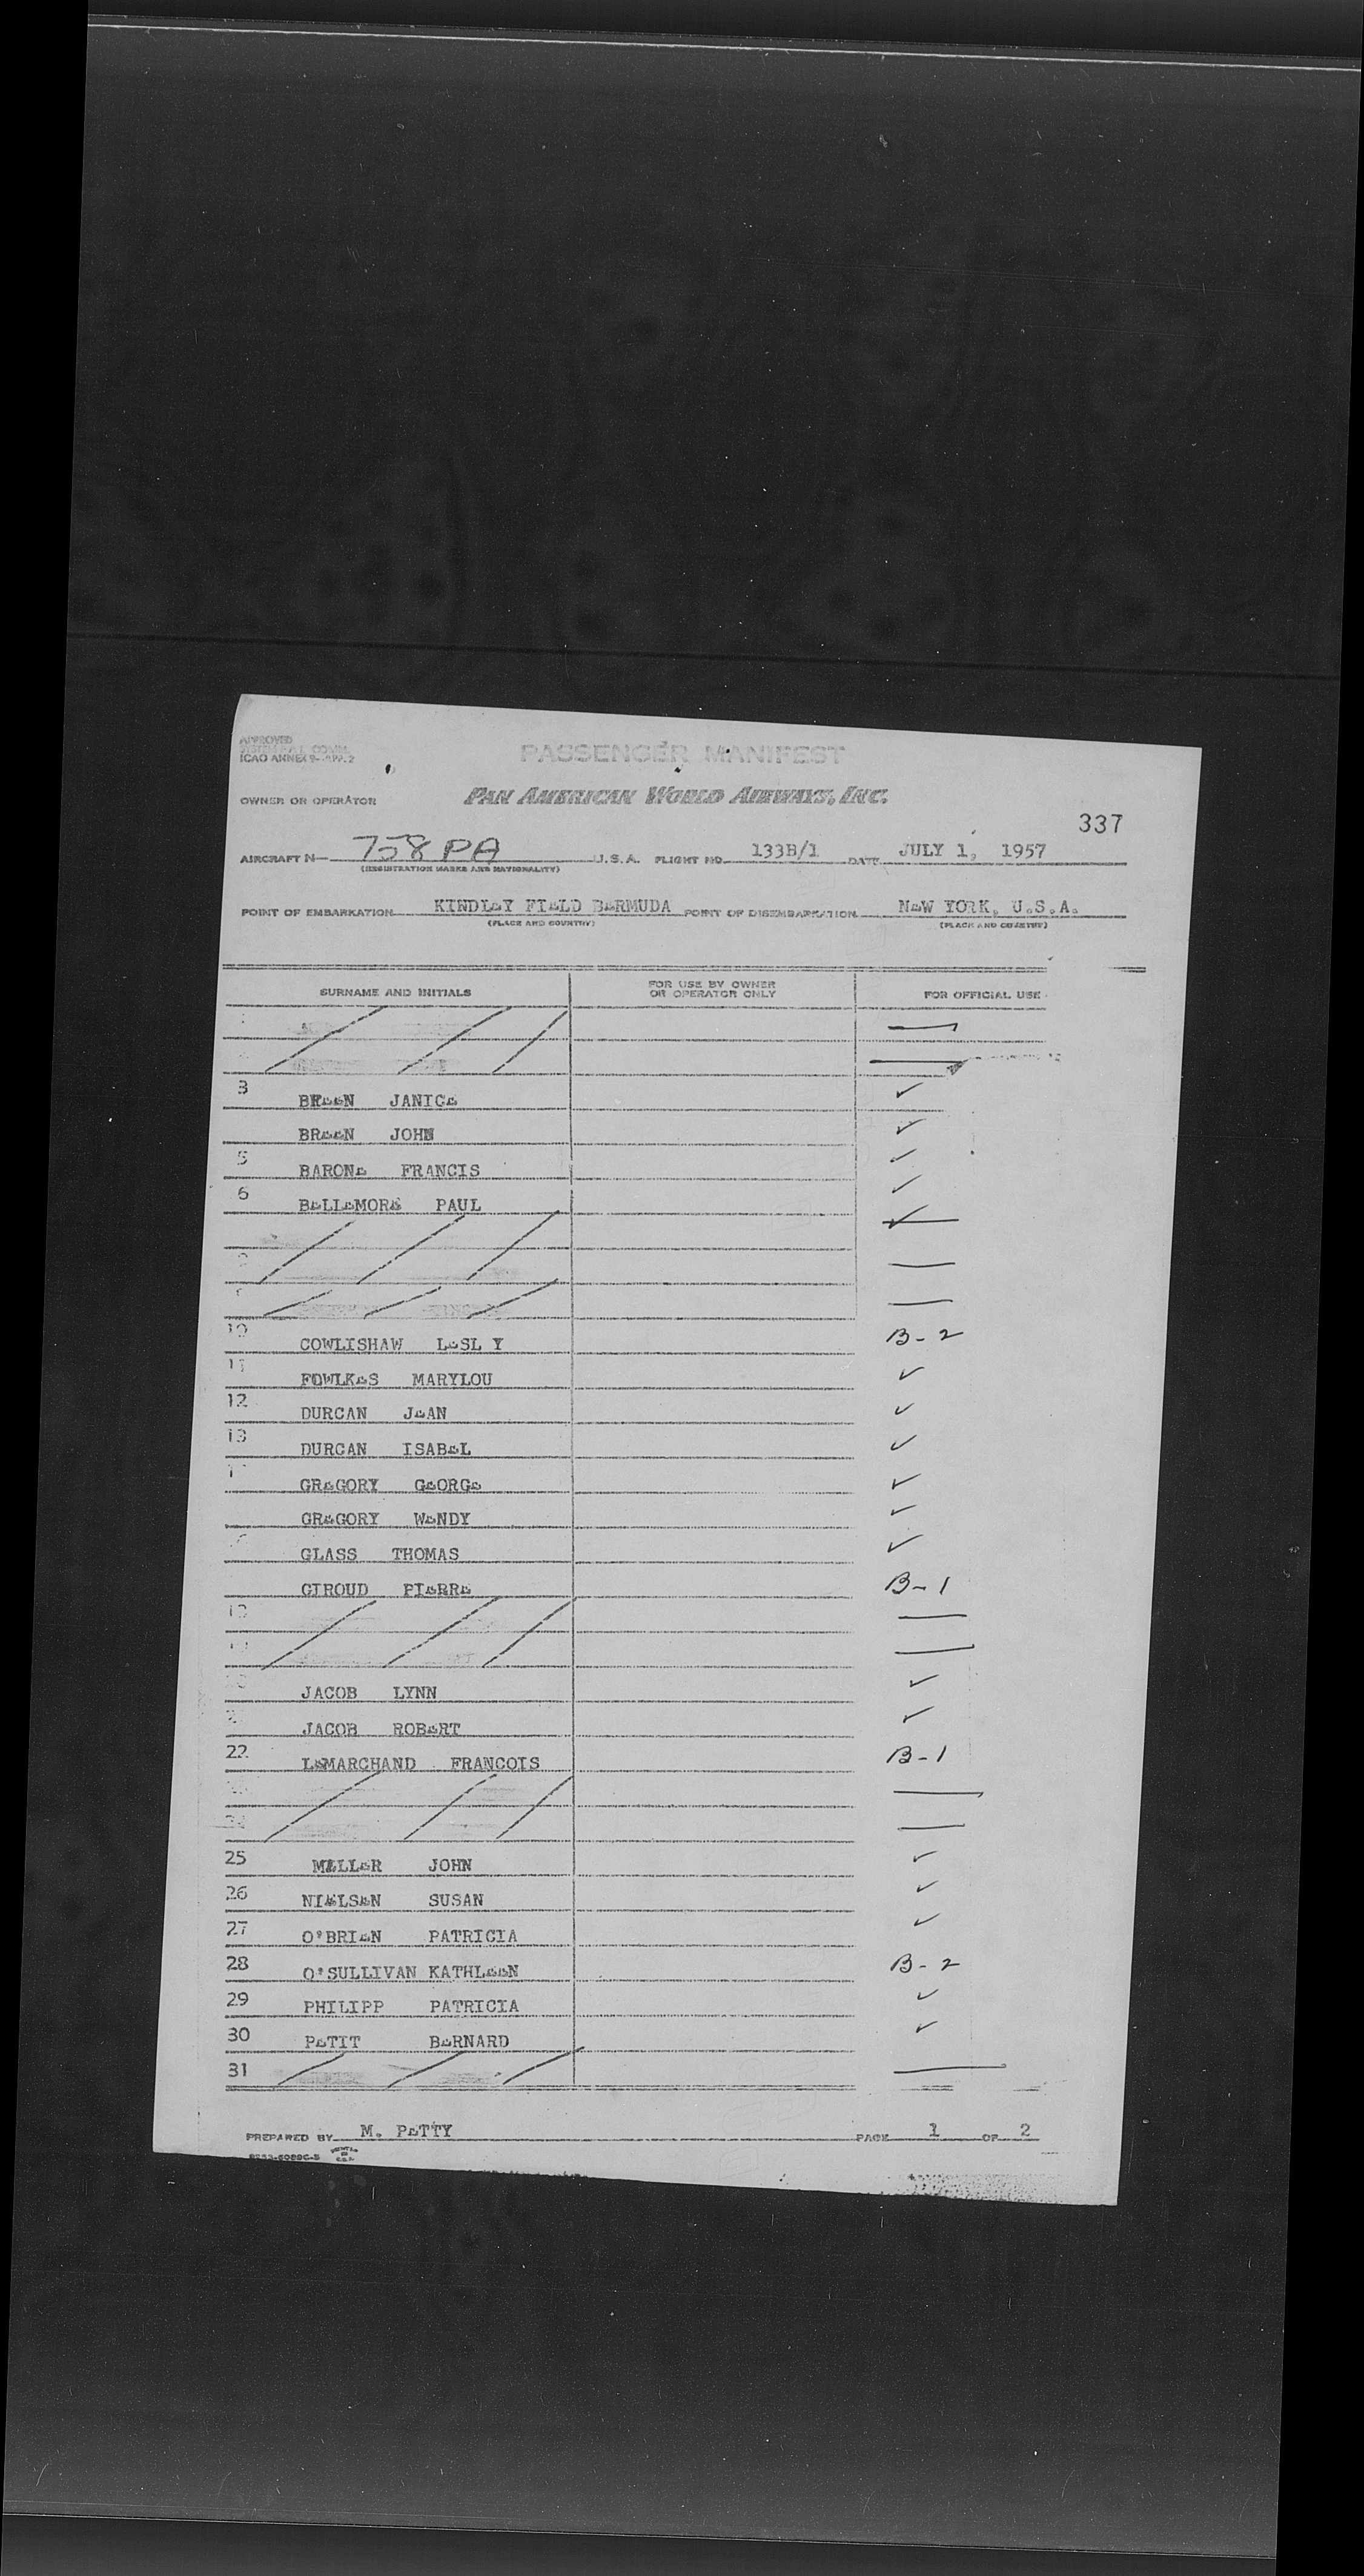 APPROVED
ICAO ANNEX 9-APP. 2
PASSENGER MANIFEST
OWNER OR OPERATOR PAN AMERICAN WORLD AIRWAYS, INC.
337
AIRCRAFT N— 758 PA U.S.A. FLIGHT NO. 133B/1 DATE JULY 1, 1957
(REGISTRATION MARKS AND NATIONALITY)
POINT OF EMBARKATION KINDLEY FIELD BERMUDA POINT OF DISEMBARKATION NEW YORK, U.S.A.
(PLACE AND COUNTRY) (PLACE AND COUNTRY)
SURNAME AND INITIALS FOR USE BY OWNER OR OPERATOR ONLY FOR OFFICIAL USE
3 BREEN JANICE ✓
BREEN JOHN ✓
5 BARONE FRANCIS ✓
6 BELLEMORE PAUL ✓
10 COWLISHAW LESL Y B-2
11 FOWLKES MARYLOU ✓
12 DURCAN JEAN ✓
13 DURCAN ISABEL ✓
GREGORY GEORGE ✓
GREGORY WENDY ✓
GLASS THOMAS ✓
GIROUD PIERRE B-1
JACOB LYNN ✓
JACOB ROBERT ✓
22 LEMARCHAND FRANCOIS B-1
25 MILLER JOHN ✓
26 NIELSEN SUSAN ✓
27 O'BRIEN PATRICIA ✓
28 O'SULLIVAN KATHLEEN B-2
29 PHILIPP PATRICIA ✓
30 PETIT BERNARD ✓
31
PREPARED BY M. PETTY PAGE 1 OF 2